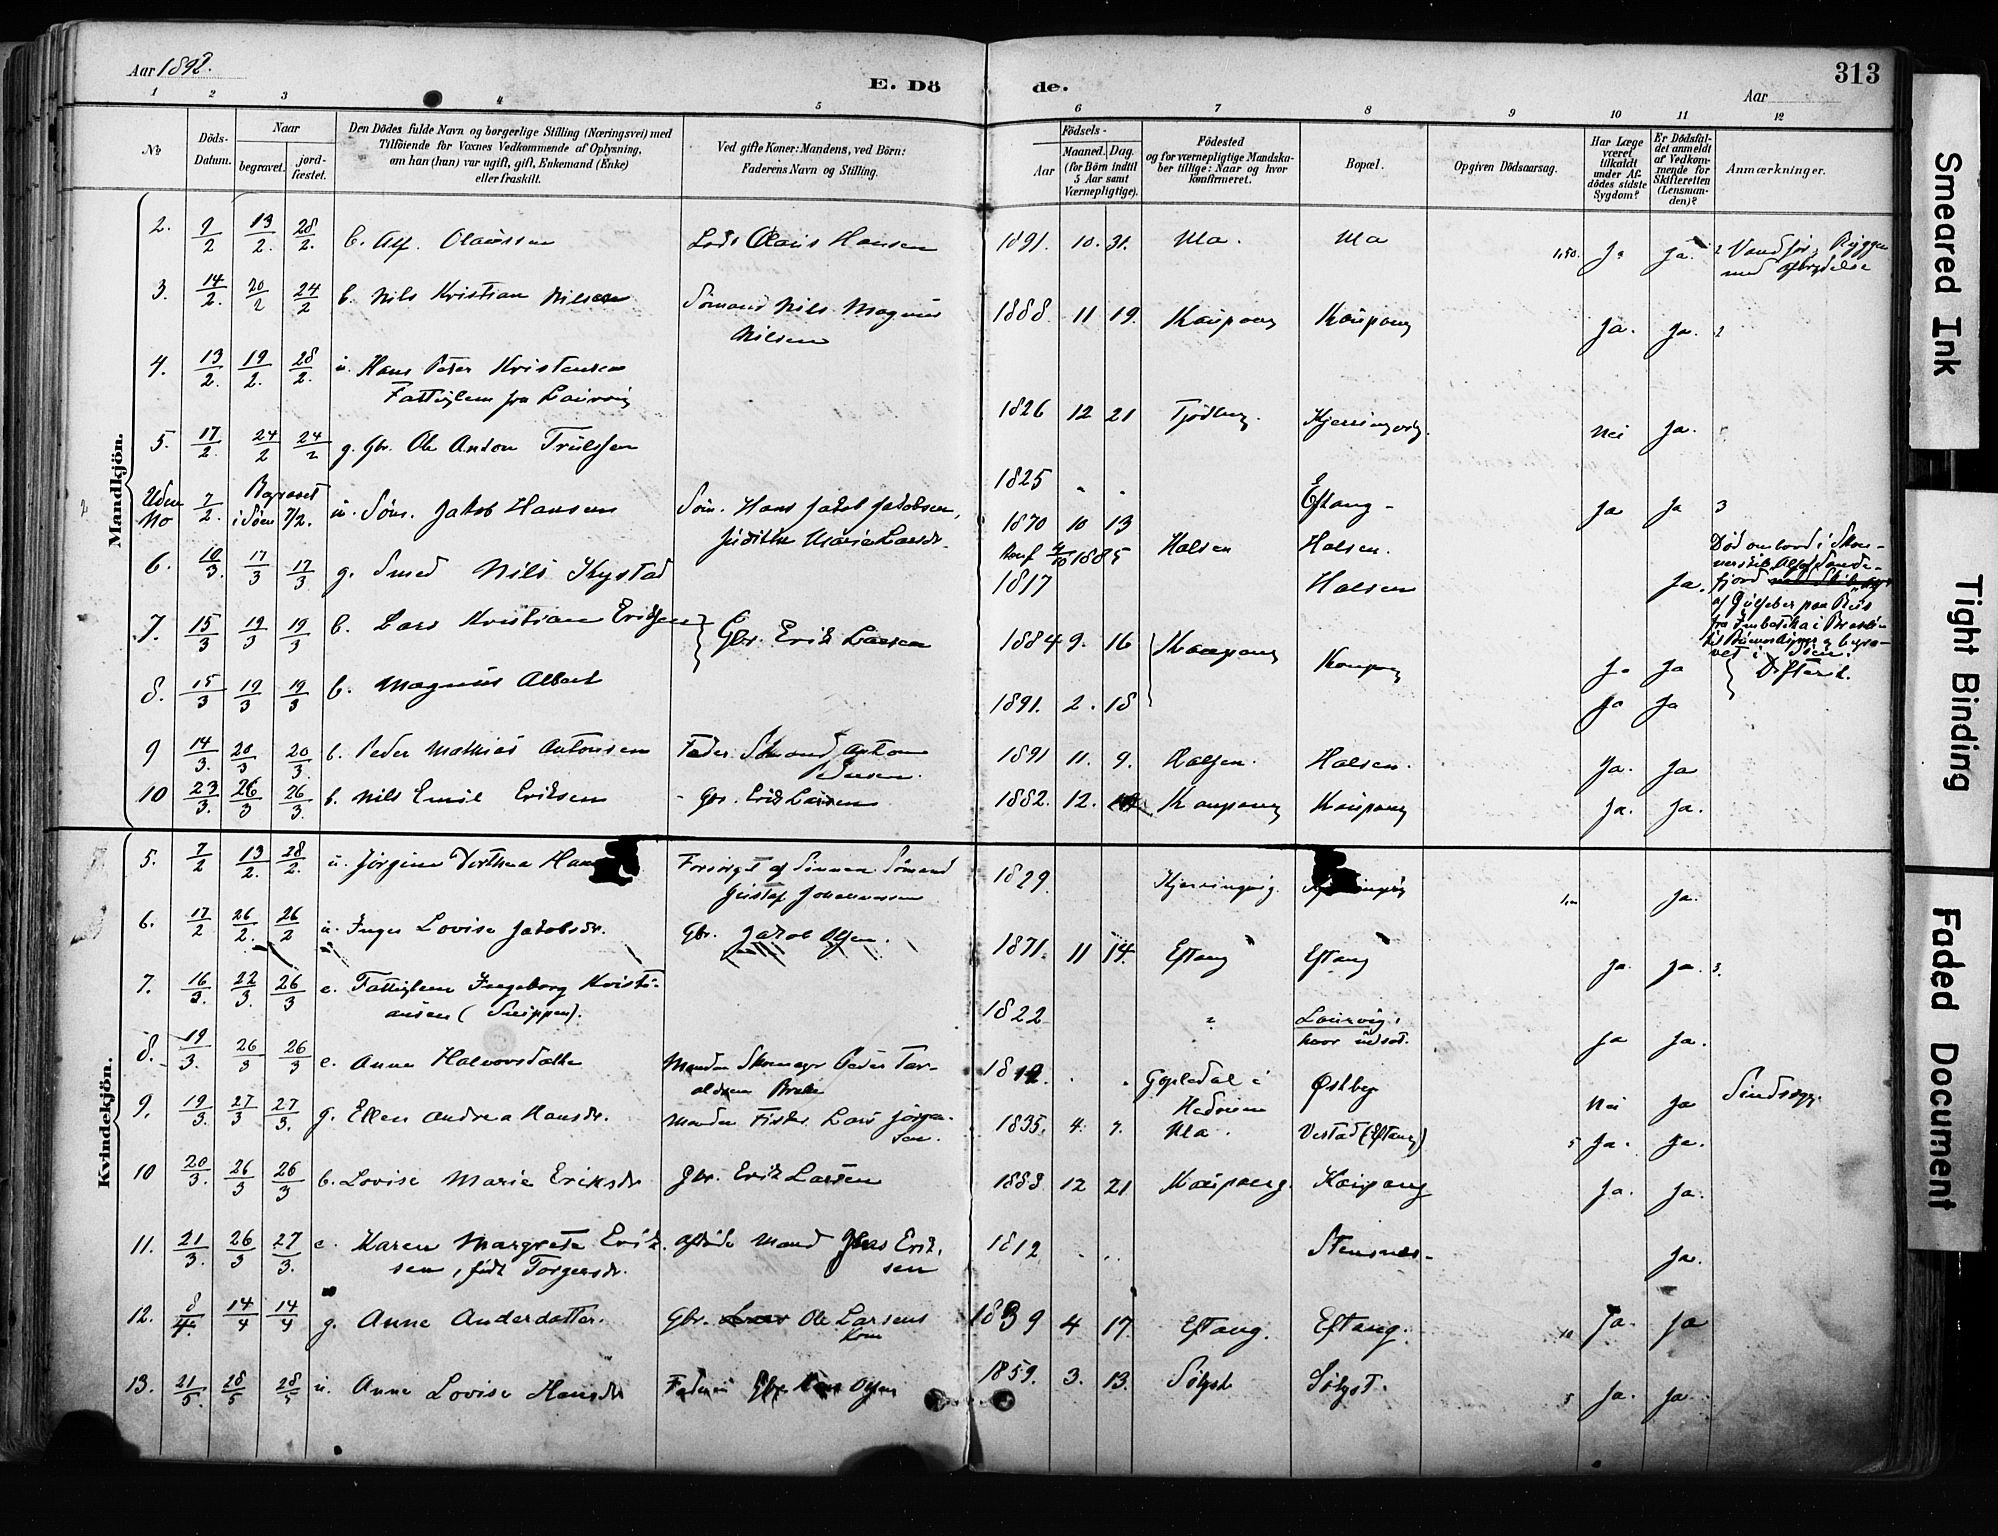 Aar 1892.
E. Döde.
Aar
313
1 2 3 4 5 6 7 8 9 10 11 12
No
Döds-Datum.
Naar
begravet.
jord-fæstet.
Den Dödes fulde Navn og borgerlige Stilling (Næringsvei) med
Tilföiende for Voxnes Vedkommende af Oplysning,
om han (hun) var ugift, gift, Enkemand (Enke)
eller fraskilt.
Ved gifte Koner: Mandens, ved Börn:
Faderens Navn og Stilling.
Födsels-
Aar
Maaned. Dag.
(for Börn indtil
5 Aar samt
Værnepligtige).
Födested
og for værnepligtige Mandska-
ber tillige: Naar og hvor
konfirmeret.
Bopæl.
Opgiven Dödsaarsag.
Har Læge
været
tilkaldt
under Af-
dödes sidste
Sygdom?
Er Dödsfal-
det anmeldt
af Vedkom-
mende for
Skifteretten
(Lensman-
den)?
Anmærkninger.
Mandkjön.
2. 9/2 13/2. 28/2. b. Alf. Olaussen Lods Olais Hansen 1891. 10. 31. Ula. Ula 1,50. Ja Ja. 2 Vandfør, Ryggen
med afbrydelse
3. 14/2. 20/2 24/2 b. Nils Kristian Nilsen Sømand Nils Magnus
Nilsen 1888. 11 19. Kaupang Kaupang Ja. Ja. 2
4. 13/2. 19/2. 28/2. u. Hans Peter Kristensen
Fattiglem fra Laurvig 1826 12 21 Tjødling. Kjerringvig. Nei Ja.
5. 17/2. 24/2 24/2 g. Gbr. Ole Anton Trulssen 1825 - - Eftang - Ja Ja 3
Uden No 7/2. Begravet i Søen 7/2. u. Søm. Jakob Hansen Søm. Hans Jakob Jakobsen,
Judithe Maria Larsdr. 1870 10 13 Halsen Halsen.
Konf 4/10 1885
Død ombord i Skon-
nerskib Alf af Sande-
fjord
af Gulfeber paa Reis
fra
begra-
vet i Søen.
6. 10/3. 17/3 17/3 g. Smed Nils Kystad 1817 Halsen Ja.
7. 15/3 19/3 19/3 b. Lars Kristian Eriksen Gbr. Erik Larsen 1884 9. 16 Kaupang Kaupang Ja Ja Difterit.
8. 15/3 19/3 19/3 b. Magnus Albert 1891. 2. 18 Ja Ja
9 14/3. 20/3 20/3. b. Peder Mathias Antonsen Fader Sømand Anton
Pedersen. 1891 11. 9. Halsen. Halsen. Ja. Ja
10 23/3. 26/3 26/3 b. Nils Emil Eriksen - Gbr. Erik Larsen 1882. 12. Kaupang Kaupang Ja. Ja.
Kvindekjön.
5. 7/2 13/2. 28/2. u. Jørgine Dorthea Forsørget af Sønnen Sømand
Gustaf Johannessen 1829. Kjerringvig. Ja.
6. 17/2 26/2. 26/2 u. Inger Lovise Jakobsdr. Gbr. Jakob Olsen. 1871. 11 14. Eftang Eftang Ja. Ja. 3.
7. 16/3. 22/3. 26/3 e. Fattiglem Ingeborg Kristi-
ansen (Snippen). 1822 " Laurvig,
hvor udsat. Ja Ja.
8. 19/3. 26/3 26/3 e. Anne Halvorsdatter Manden Skomagr Peder Tar-
aldsen 18 - - Gopledal i
Hedrum Østby Nei Ja Sindssyg.
9. 19/3. 27/3 27/3. g. Ellen Andrea Hansdr. Manden Fisker Lars Jørgen-
sen. 1835. 4. 7. Ula. Vestad (Eftang) 5 Ja. Ja.
10 20/3. 26/3 26/3 b. Lovise Marie Eriksdr Gbr. Erik Larsen 1883 12 21 Kaupang. Kaupang Ja. Ja.
11. 21/3. 26/3 27/3. e. Karen Margrete Erik-
sen, født Torgersdr. afdøde Mand Erik-
sen 1812 - - Stensnes- Ja.
12. 8/4. 14/4 14/4 g. Anne Andersdatter. Gbr. Ole Larsens
kone 1839 4 17 Eftang. Eftang. 10 Ja. Ja
13. 21/5. 28/5 28/5 u. Anne Lovise Hansdr Faderen Gbr Olsen 1859. 3. 13. Søbyst. Søbyst. 5 Ja. Ja.
Smeared Ink
Tight Binding
Faded Document